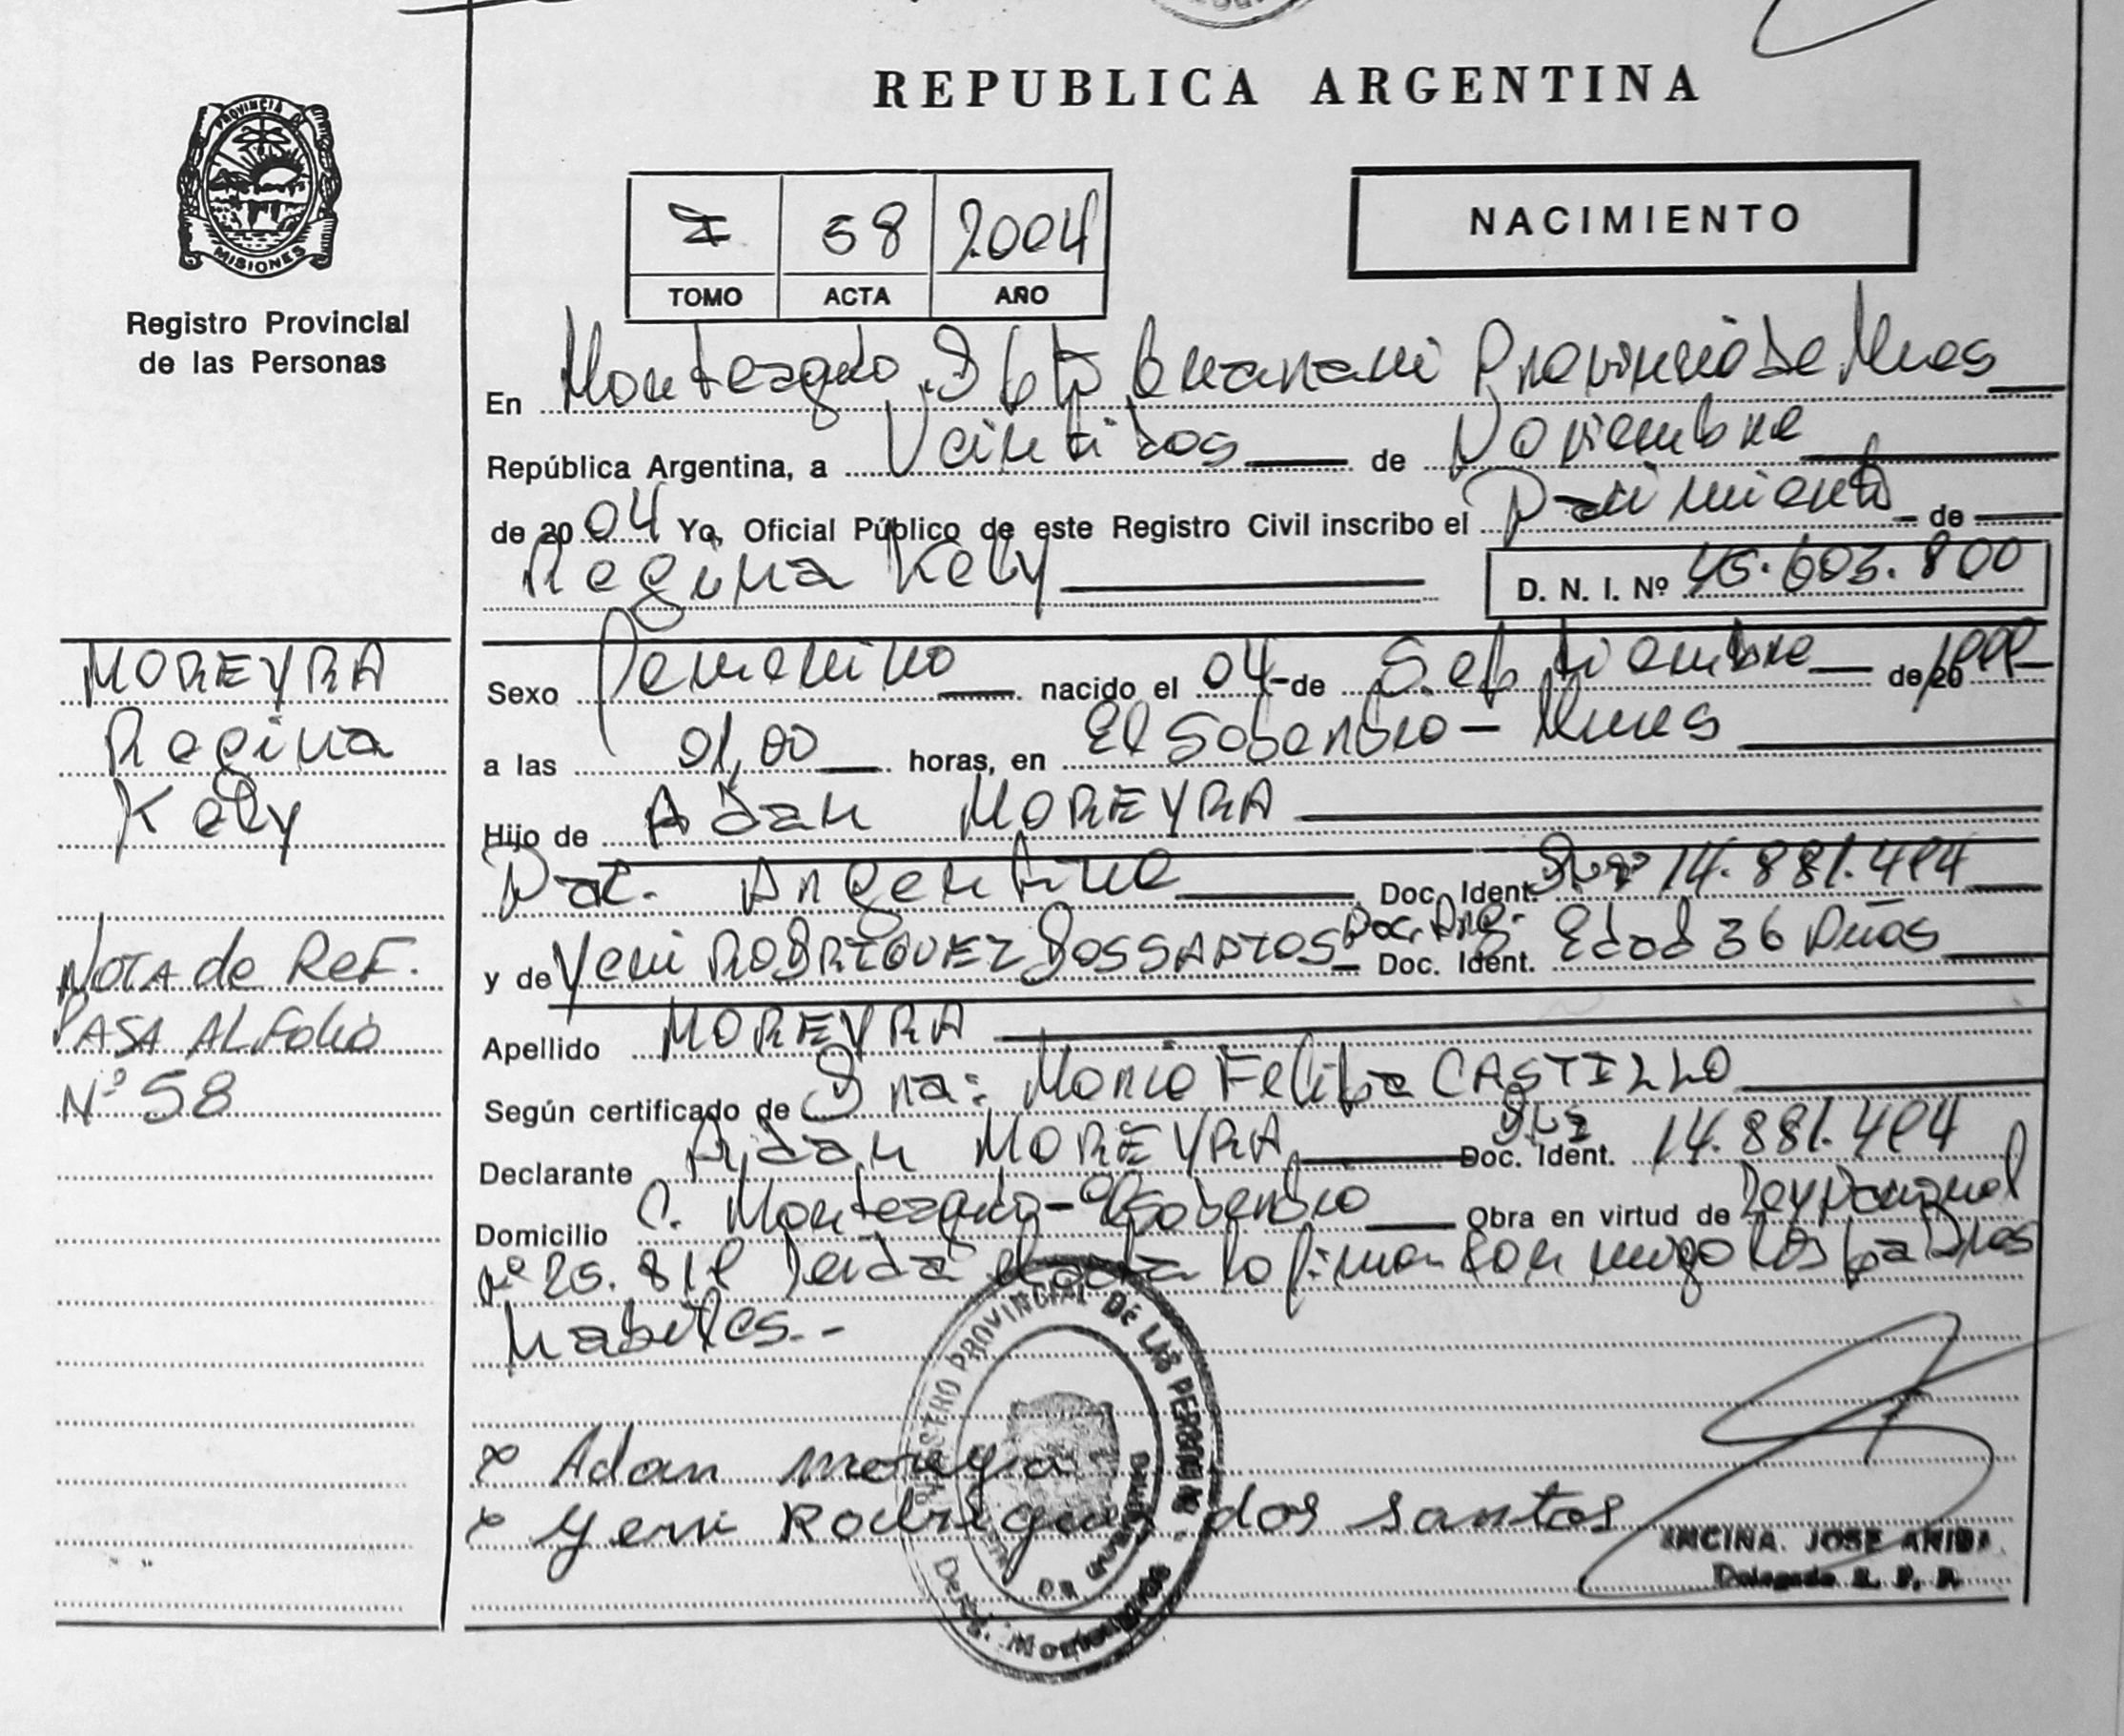 REPUBLICA ARGENTINA
PROVINCIA DE
MISIONES
Registro Provincial
de las Personas
I 58 2004
TOMO ACTA AÑO
NACIMIENTO
En Monteagudo Dpto Guarani Provincia de Mnes
República Argentina, a Veintidos de Noviembre
de 2004 Yo, Oficial Público de este Registro Civil inscribo el Nacimiento de
Regina Kely D. N. I. Nº 45.603.800
Sexo Femenino nacido el 04 de Setiembre de 20
a las 01,00 horas, en El Soberbio - Mnes
Hijo de Adan MOREYRA
Nac. Argentino Doc. Ident. 14.881.494
y de Yeni RODRIGUEZ DOSSANTOS Doc. Ident. Edad 36 Años
Apellido MOREYRA
Según certificado de Sra: Maria Felipa CASTILLO
Declarante Adan MOREYRA Doc. Ident. 14.881.494
Domicilio C. Monteagudo - El Soberbio Obra en virtud de Ley Nacional
Nº 25.819 Leida el acta la firman conmigo los padres
habiles.-
MOREYRA
Regina
Kely
NOTA de REF.
PASA AL Folio
Nº 58
x Adan moreyra
x Yeni Rodriguez dos santos
REGISTRO PROVINCIAL DE LAS PERSONAS
ANCINA. JOSE ANIBA
Delegado R. P. P.